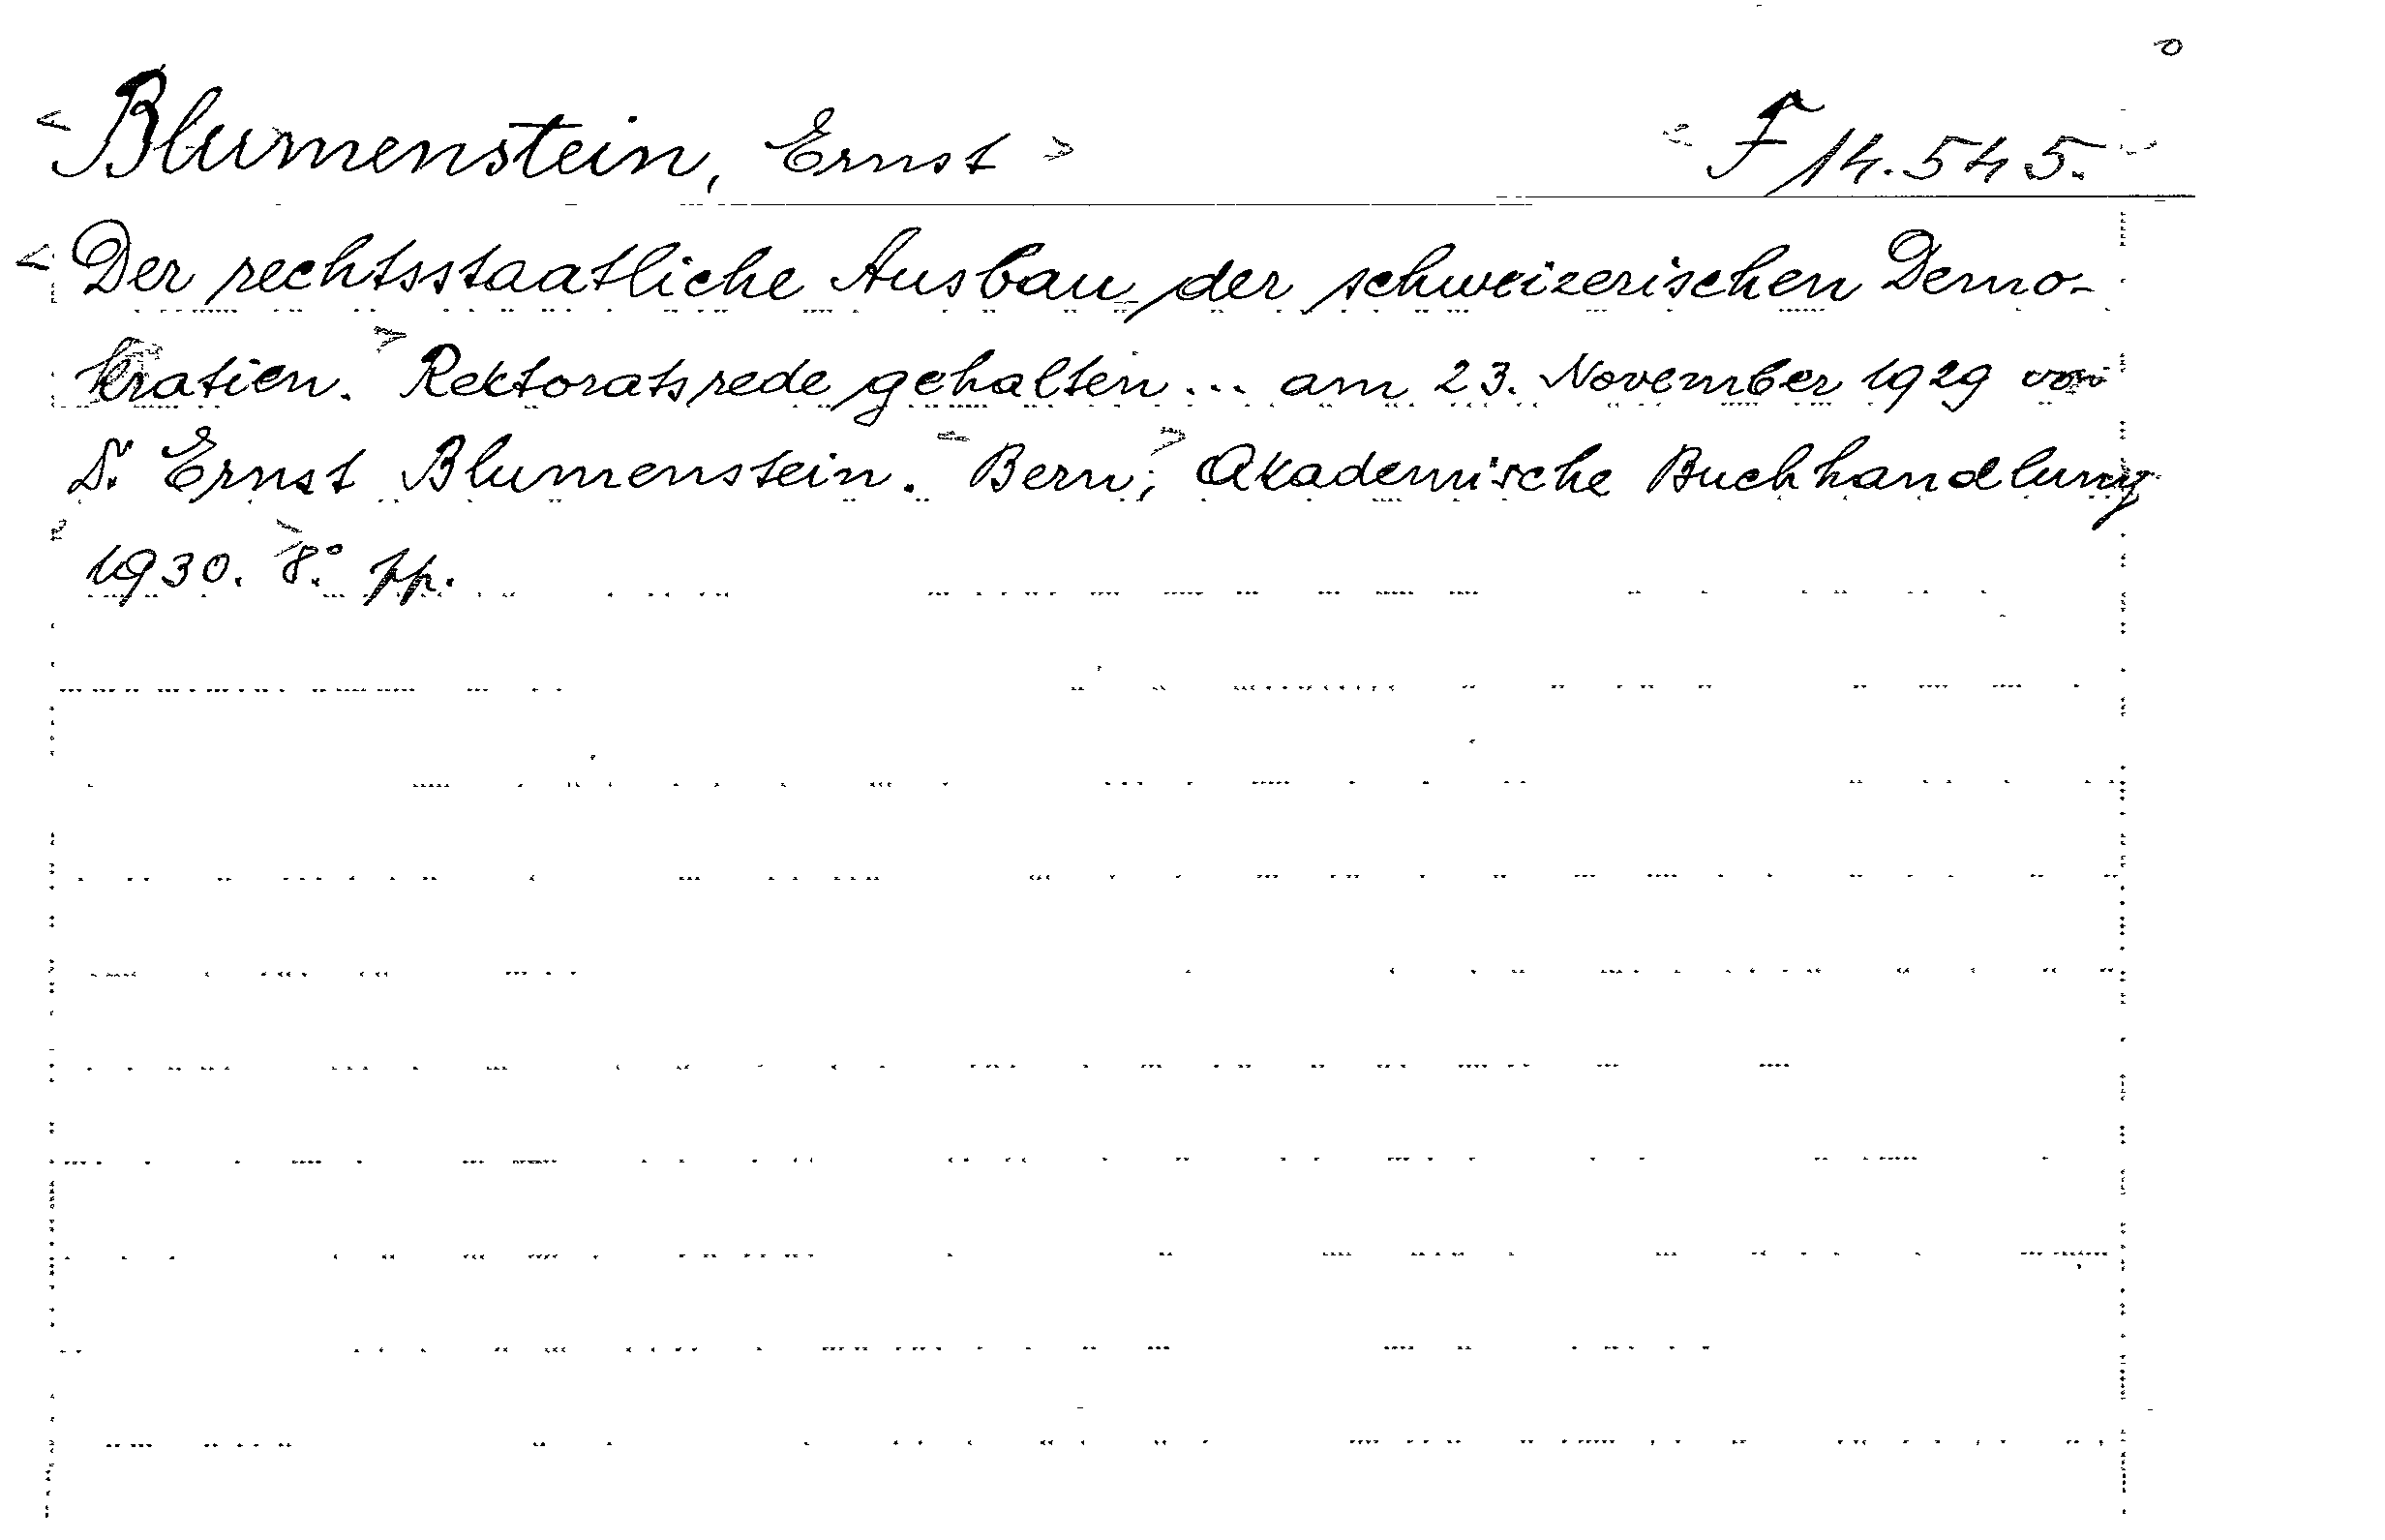 <Blumenstein, Ernst> <F 14.545.>
<Der rechtsstaatliche Ausbau der schweizerischen Demo-
kratien.> Rektoratsrede gehalten... am 23. November 1929 von
D. Ernst Blumenstein. <Bern;> Akademische Buchhandlung
<1930.> 8.° pp.